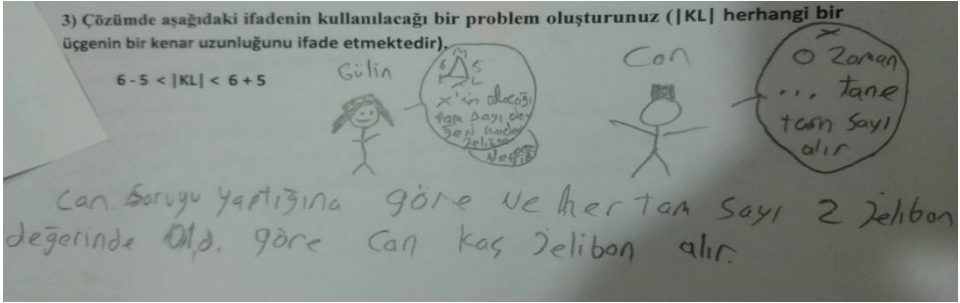 3) Çözümde aşağıdaki ifadenin kullanılacağı bir problem oluşturunuz (|KL| herhangi bir
üçgenin bir kenar uzunluğunu ifade etmektedir).
6 - 5 < |KL| < 6 + 5
Gülin
M
6 5
K x L
x'in alacağı
tam sayı de-
ğeri kadar
jelibon
Can
O zaman
... tane
tam sayı
alır
Can Soruyu yaptığına göre ve her tam sayı 2 jelibon
değerinde old. göre Can kaç jelibon alır.